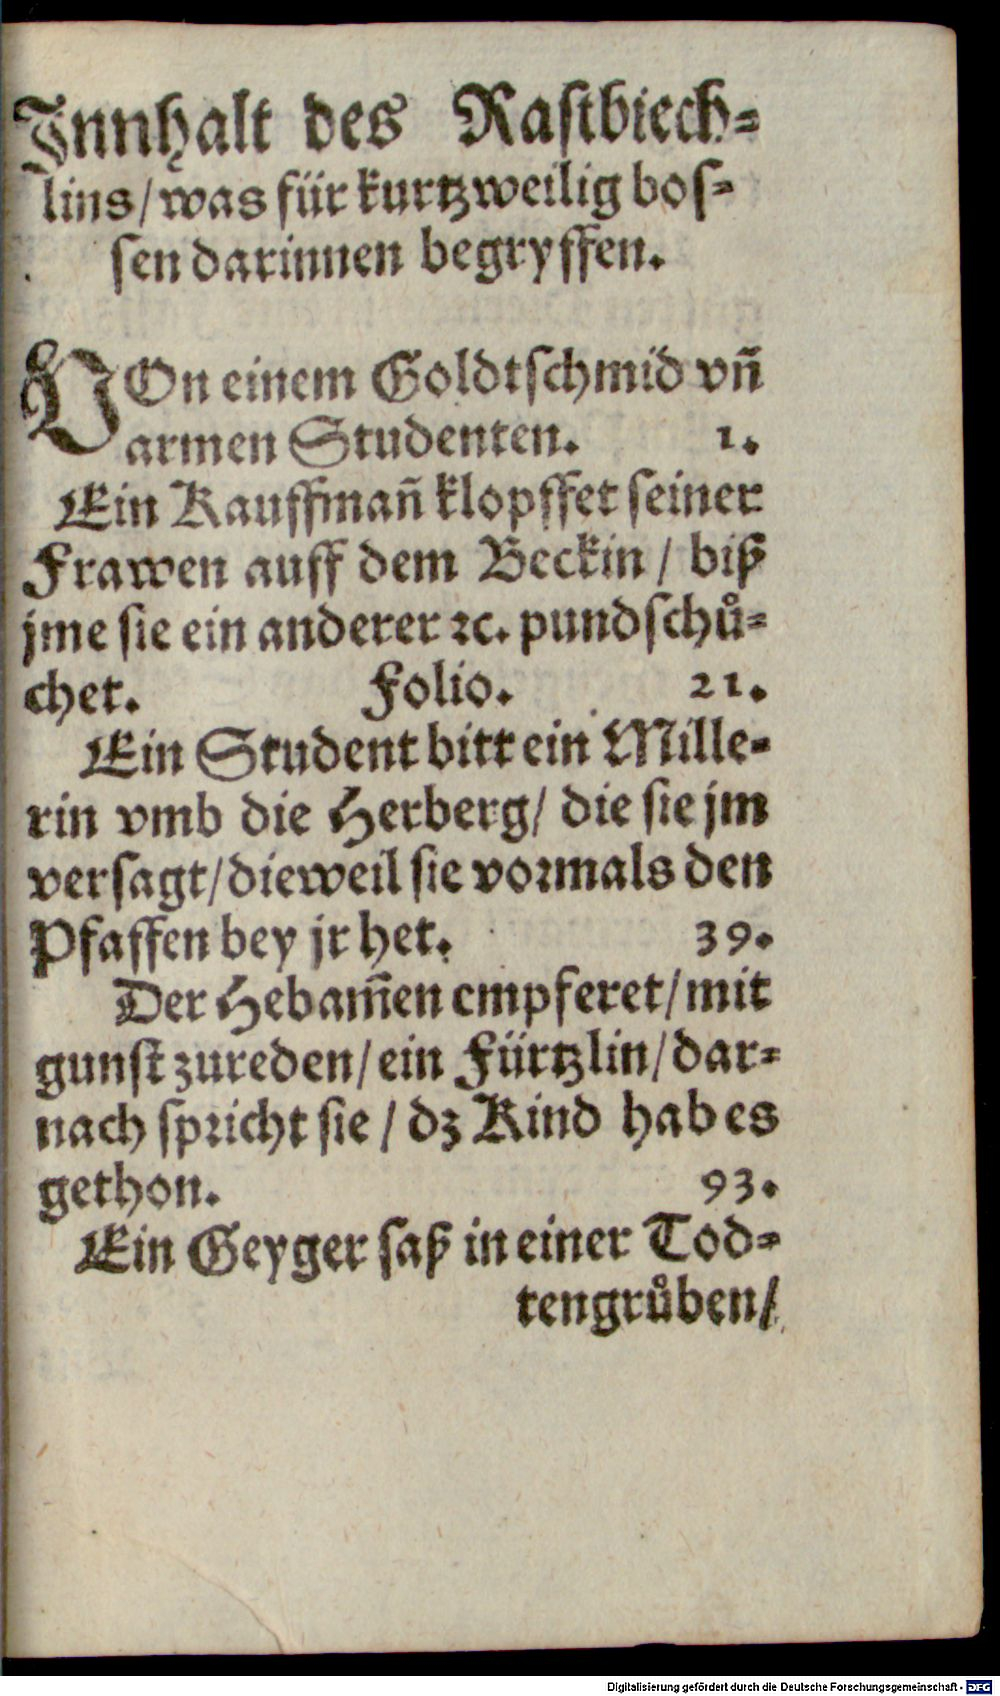 Jnnhalt des Rastbiech-
lins/ was für kurtzweilig bos-
sen darinnen begryffen.
VOn einem Goldtschmid vn̄
armen Studenten. 1.
Ein Kauffman̄ klopffet seiner
Frawen auff dem Beckin / biß
jme sie ein anderer ꝛc. pundschů-
chet. Folio. 21.
Ein Student bitt ein Mille-
rin vmb die Herberg/ die sie jm
versagt/ dieweil sie vormals den
Pfaffen bey jr het. 39.
Der Hebam̄en empferet/ mit
gunst zureden/ ein Fürtzlin/ dar-
nach spricht sie / dz Kind hab es
gethon. 93.
Ein Geyger saß in einer Tod-
tengrůben/
Digitalisierung gefördert durch die Deutsche Forschungsgemeinschaft - DFG